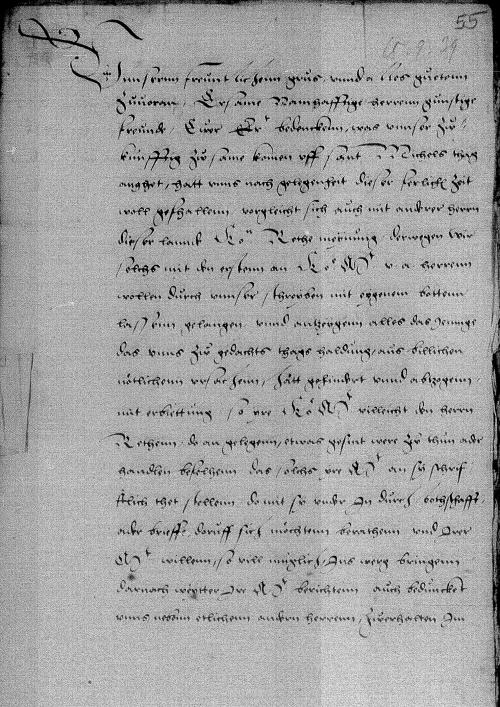 55
Un unserm freuntlichenn grus, unnd alles guetenn
Zuvorann, Ersame Namhafftige herrenn gunstige
freunde, Ewre Er bedenckenn, was unnser Zw
kunfftig Zw same komen uff sant Michels thag
anghet, hatt unns nach gelegenheit dieser ferlich Zeit
woll gefhallenn, vergleicht sich auch mit anderer herrn
dieser lannd Ko Rethe meynung, derwegen wir
solchs mit den erstenn an Ko Mt u. a. herrenn
wollen durch unnser schreyben mit eygenem bottenn
lassenn gelangen unnd antzeygenn alles das Jennige
das unns Zw gedachts thags haldung, aus billichen
nötlichenn ursachenn, hatt gehindert unnd abtzogenn,
mit erbiettung, so yre Ko Mt villeicht den herrn
Rethenn, do an gelegenn, etwas gesint were Zw thun ader
handlen befelhenn das solchs yre Mt an sy schrif
ftlich thet stellenn, do mit sy under In durch bothschafft
ader brieffe, doruff sich möchtenn berathenn und Irer
Mt willenn, so vill muglich, Ins werg bringenn
darnach weytter Ire Mt berichtenn auch beduncket
unns nebenn etlichenn andern herrenn, Zwerhalten Im